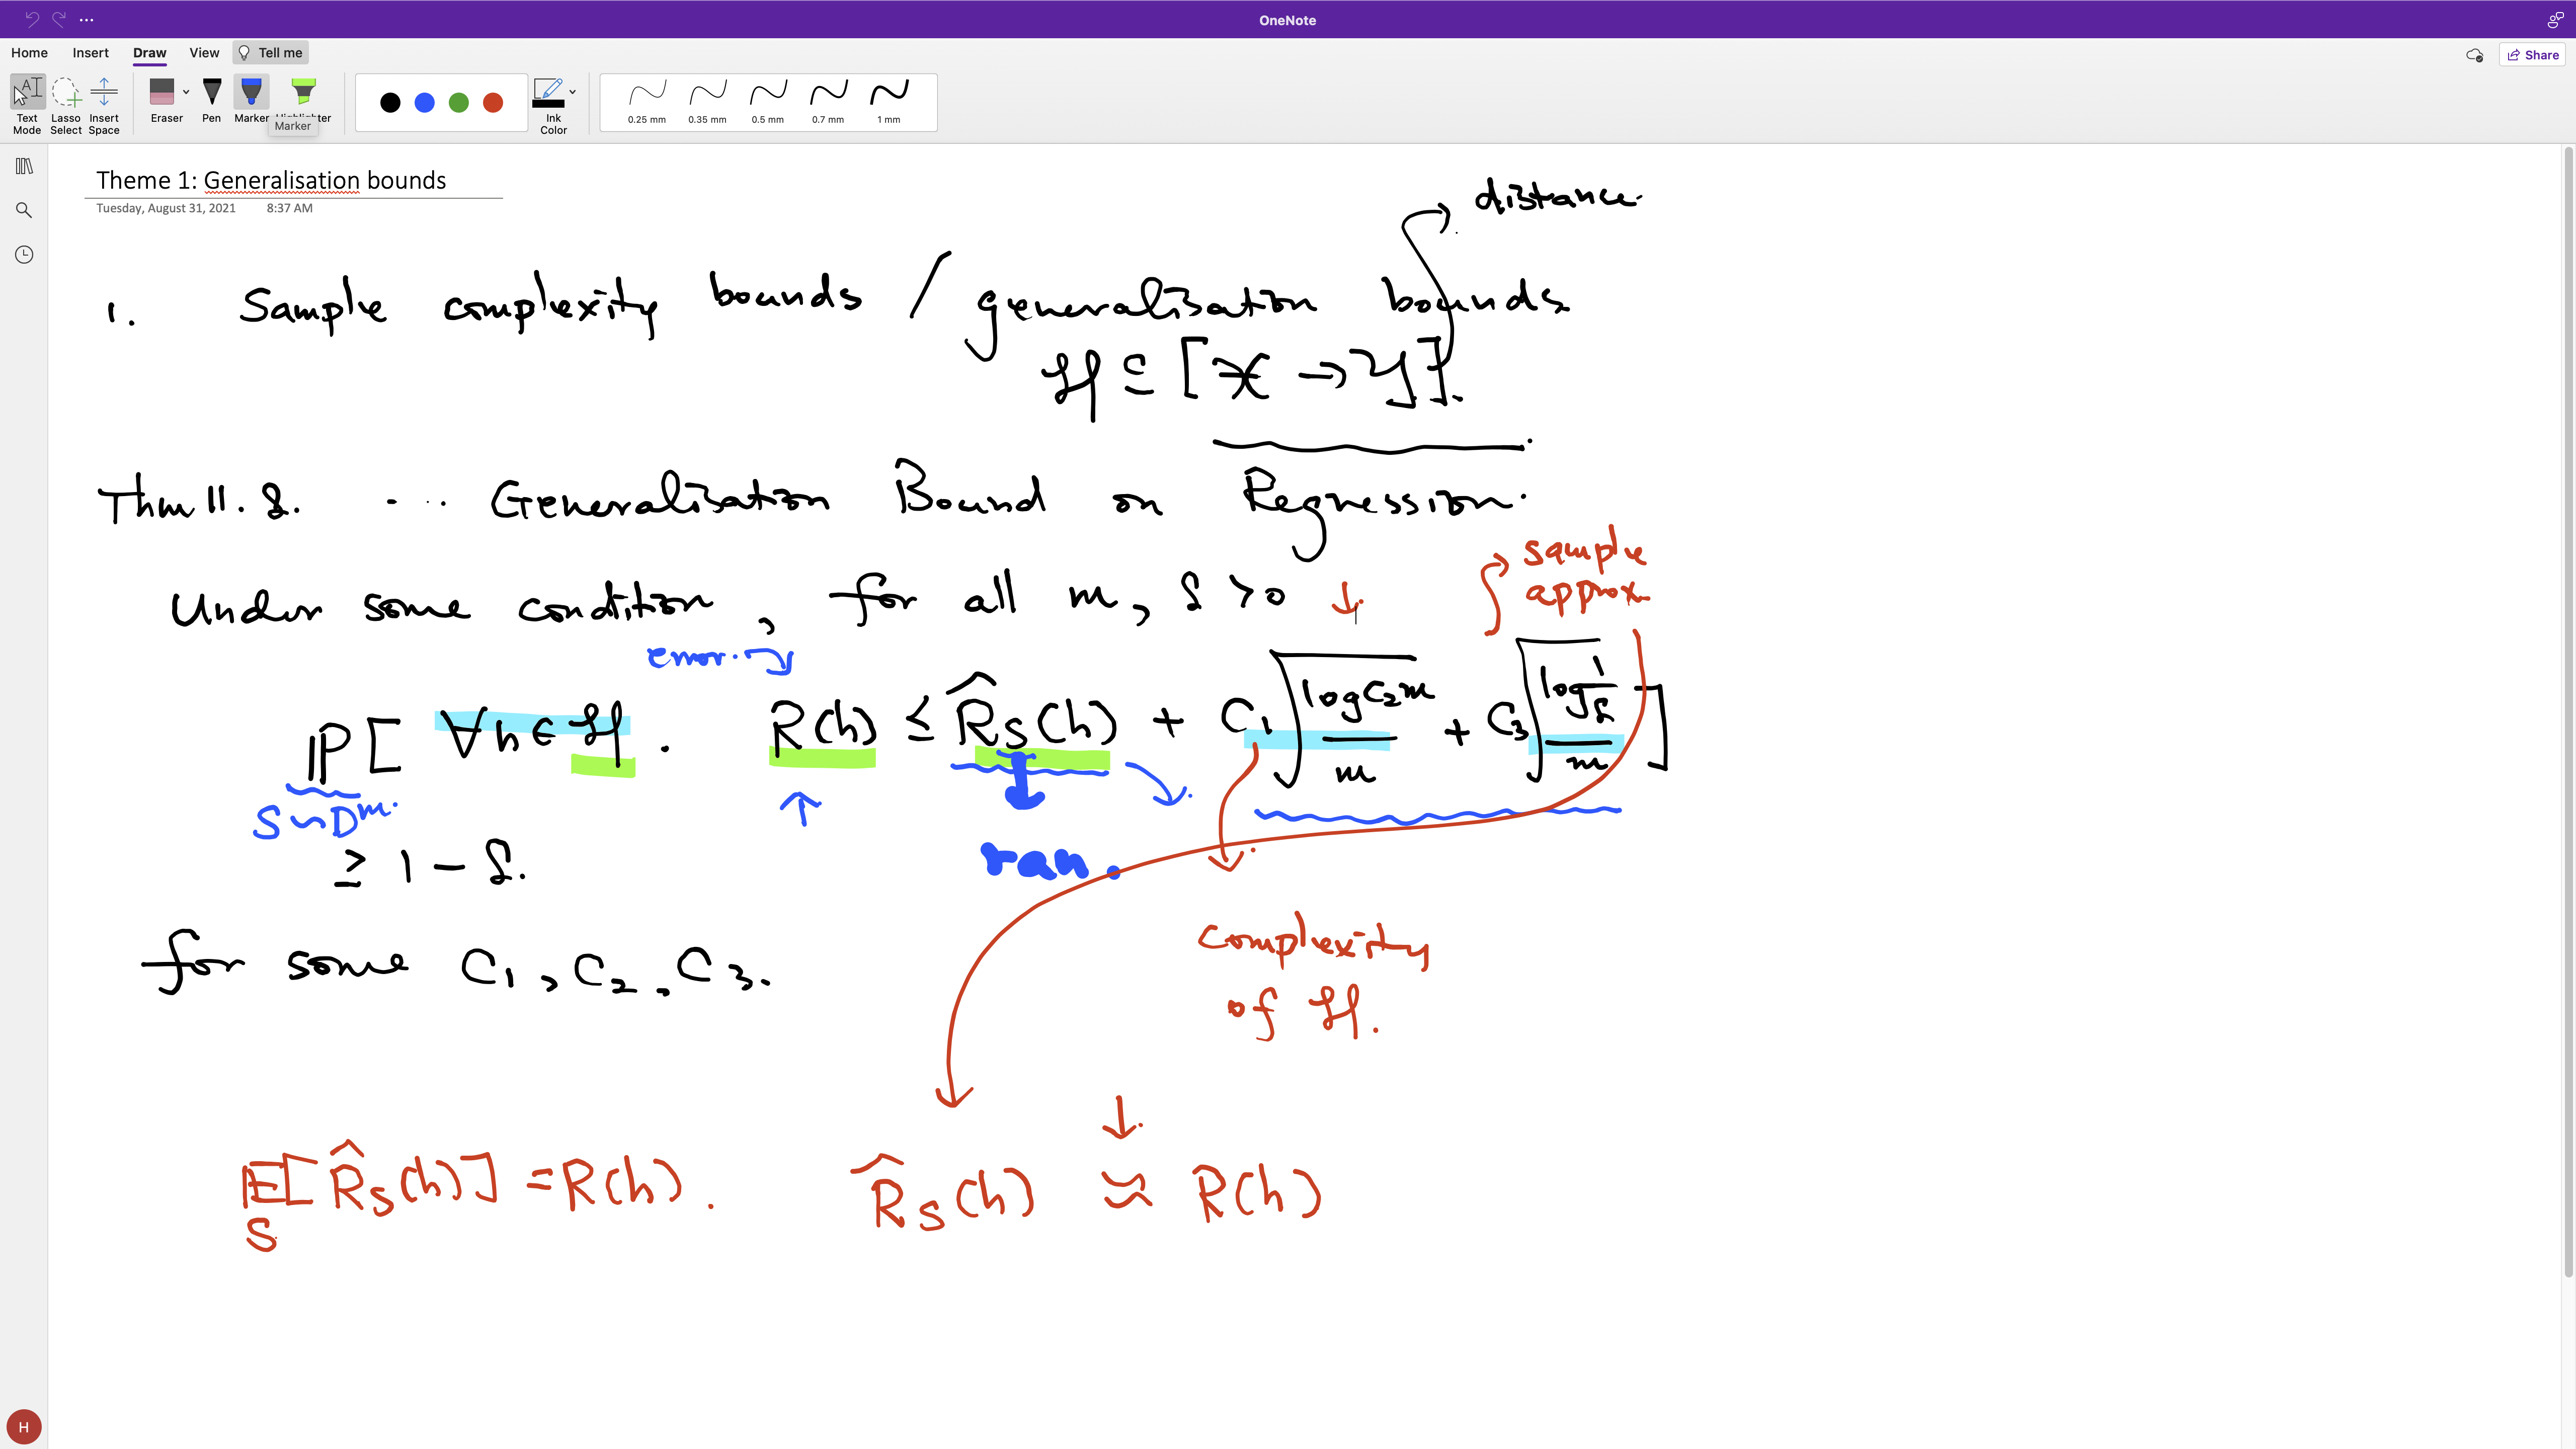 OneNote
Home Insert Draw View Tell me
Share
Text Mode
Lasso Select
Insert Space
Eraser
Pen
Marker
Marker
Ink Color
0.25 mm 0.35 mm 0.5 mm 0.7 mm 1 mm
Theme 1: Generalisation bounds
Tuesday, August 31, 2021 8:37 AM
distance.
1. Sample complexity bounds / generalisation bounds
ℋ ⊆ [𝒳 → 𝒴].
Thm 11.8. - ·· Generalisation Bound on Regression.
Under some condition, for all m, δ > 0
sample approx
error.
ℙ [ ∀h ∈ ℋ. R(h) ≤ R̂_S(h) + C₁ √(log C₂m / m) + C₃ √(log 1/δ / m) ]
S ~ D^m.
≥ 1 - δ.
ran.
for some C₁, C₂, C₃.
complexity of ℋ.
𝔼_S [R̂_S(h)] = R(h). R̂_S(h) ≈ R(h)
H